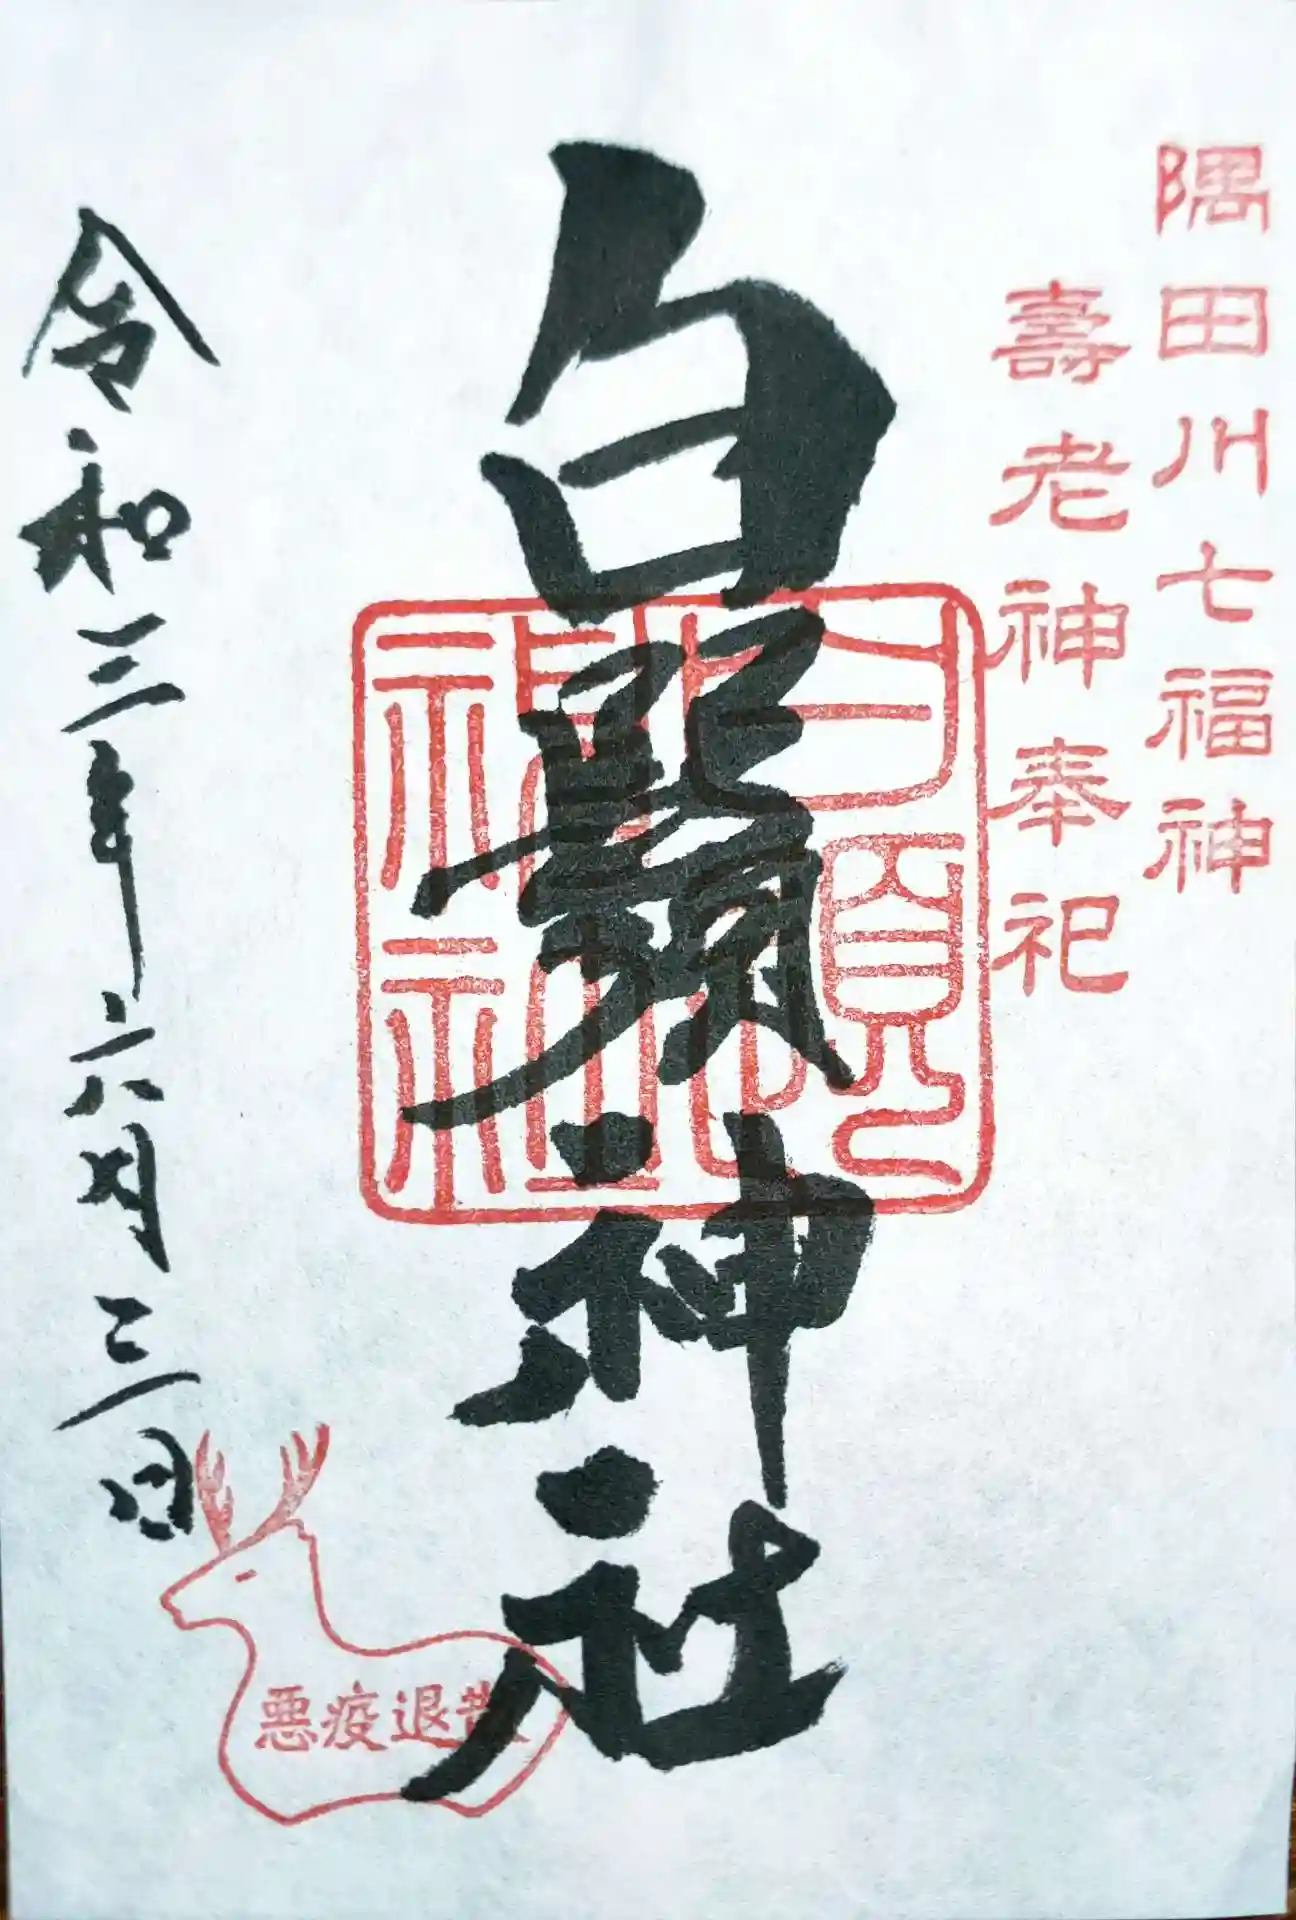 隅田川七福神
壽老神奉祀
白鬚神社
白鬚神社
令和三年六月三日
悪疫退散